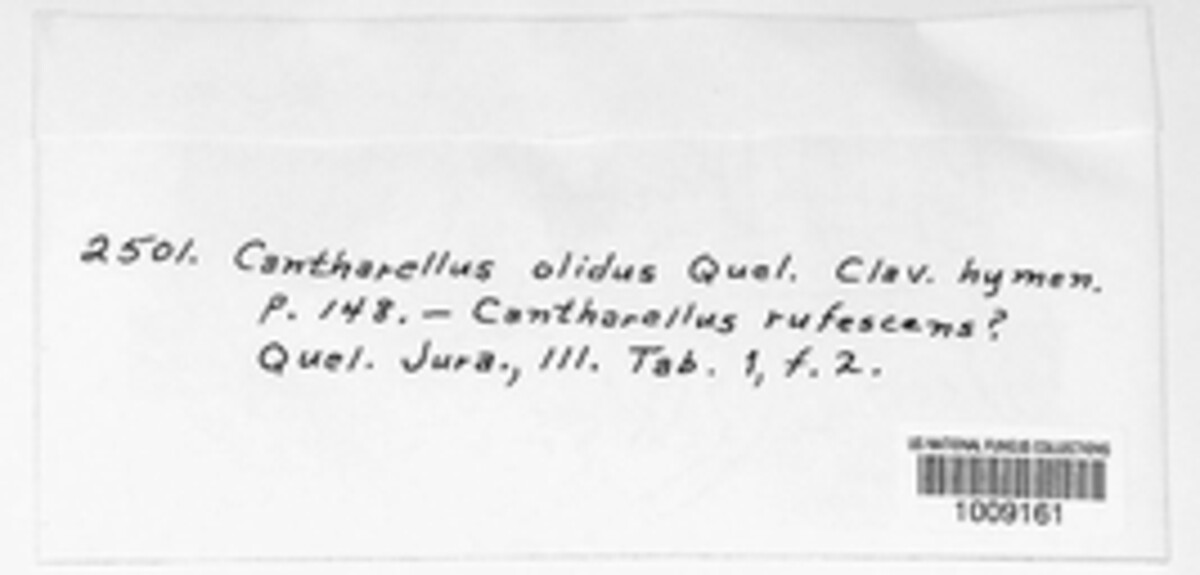 2501. Cantharellus olidus Quel. Clav. hymen.
p. 148. — Cantharellus rufescens?
Quel. Jura., III. Tab. 1, f. 2.
US NATIONAL FUNGUS COLLECTIONS
1009161